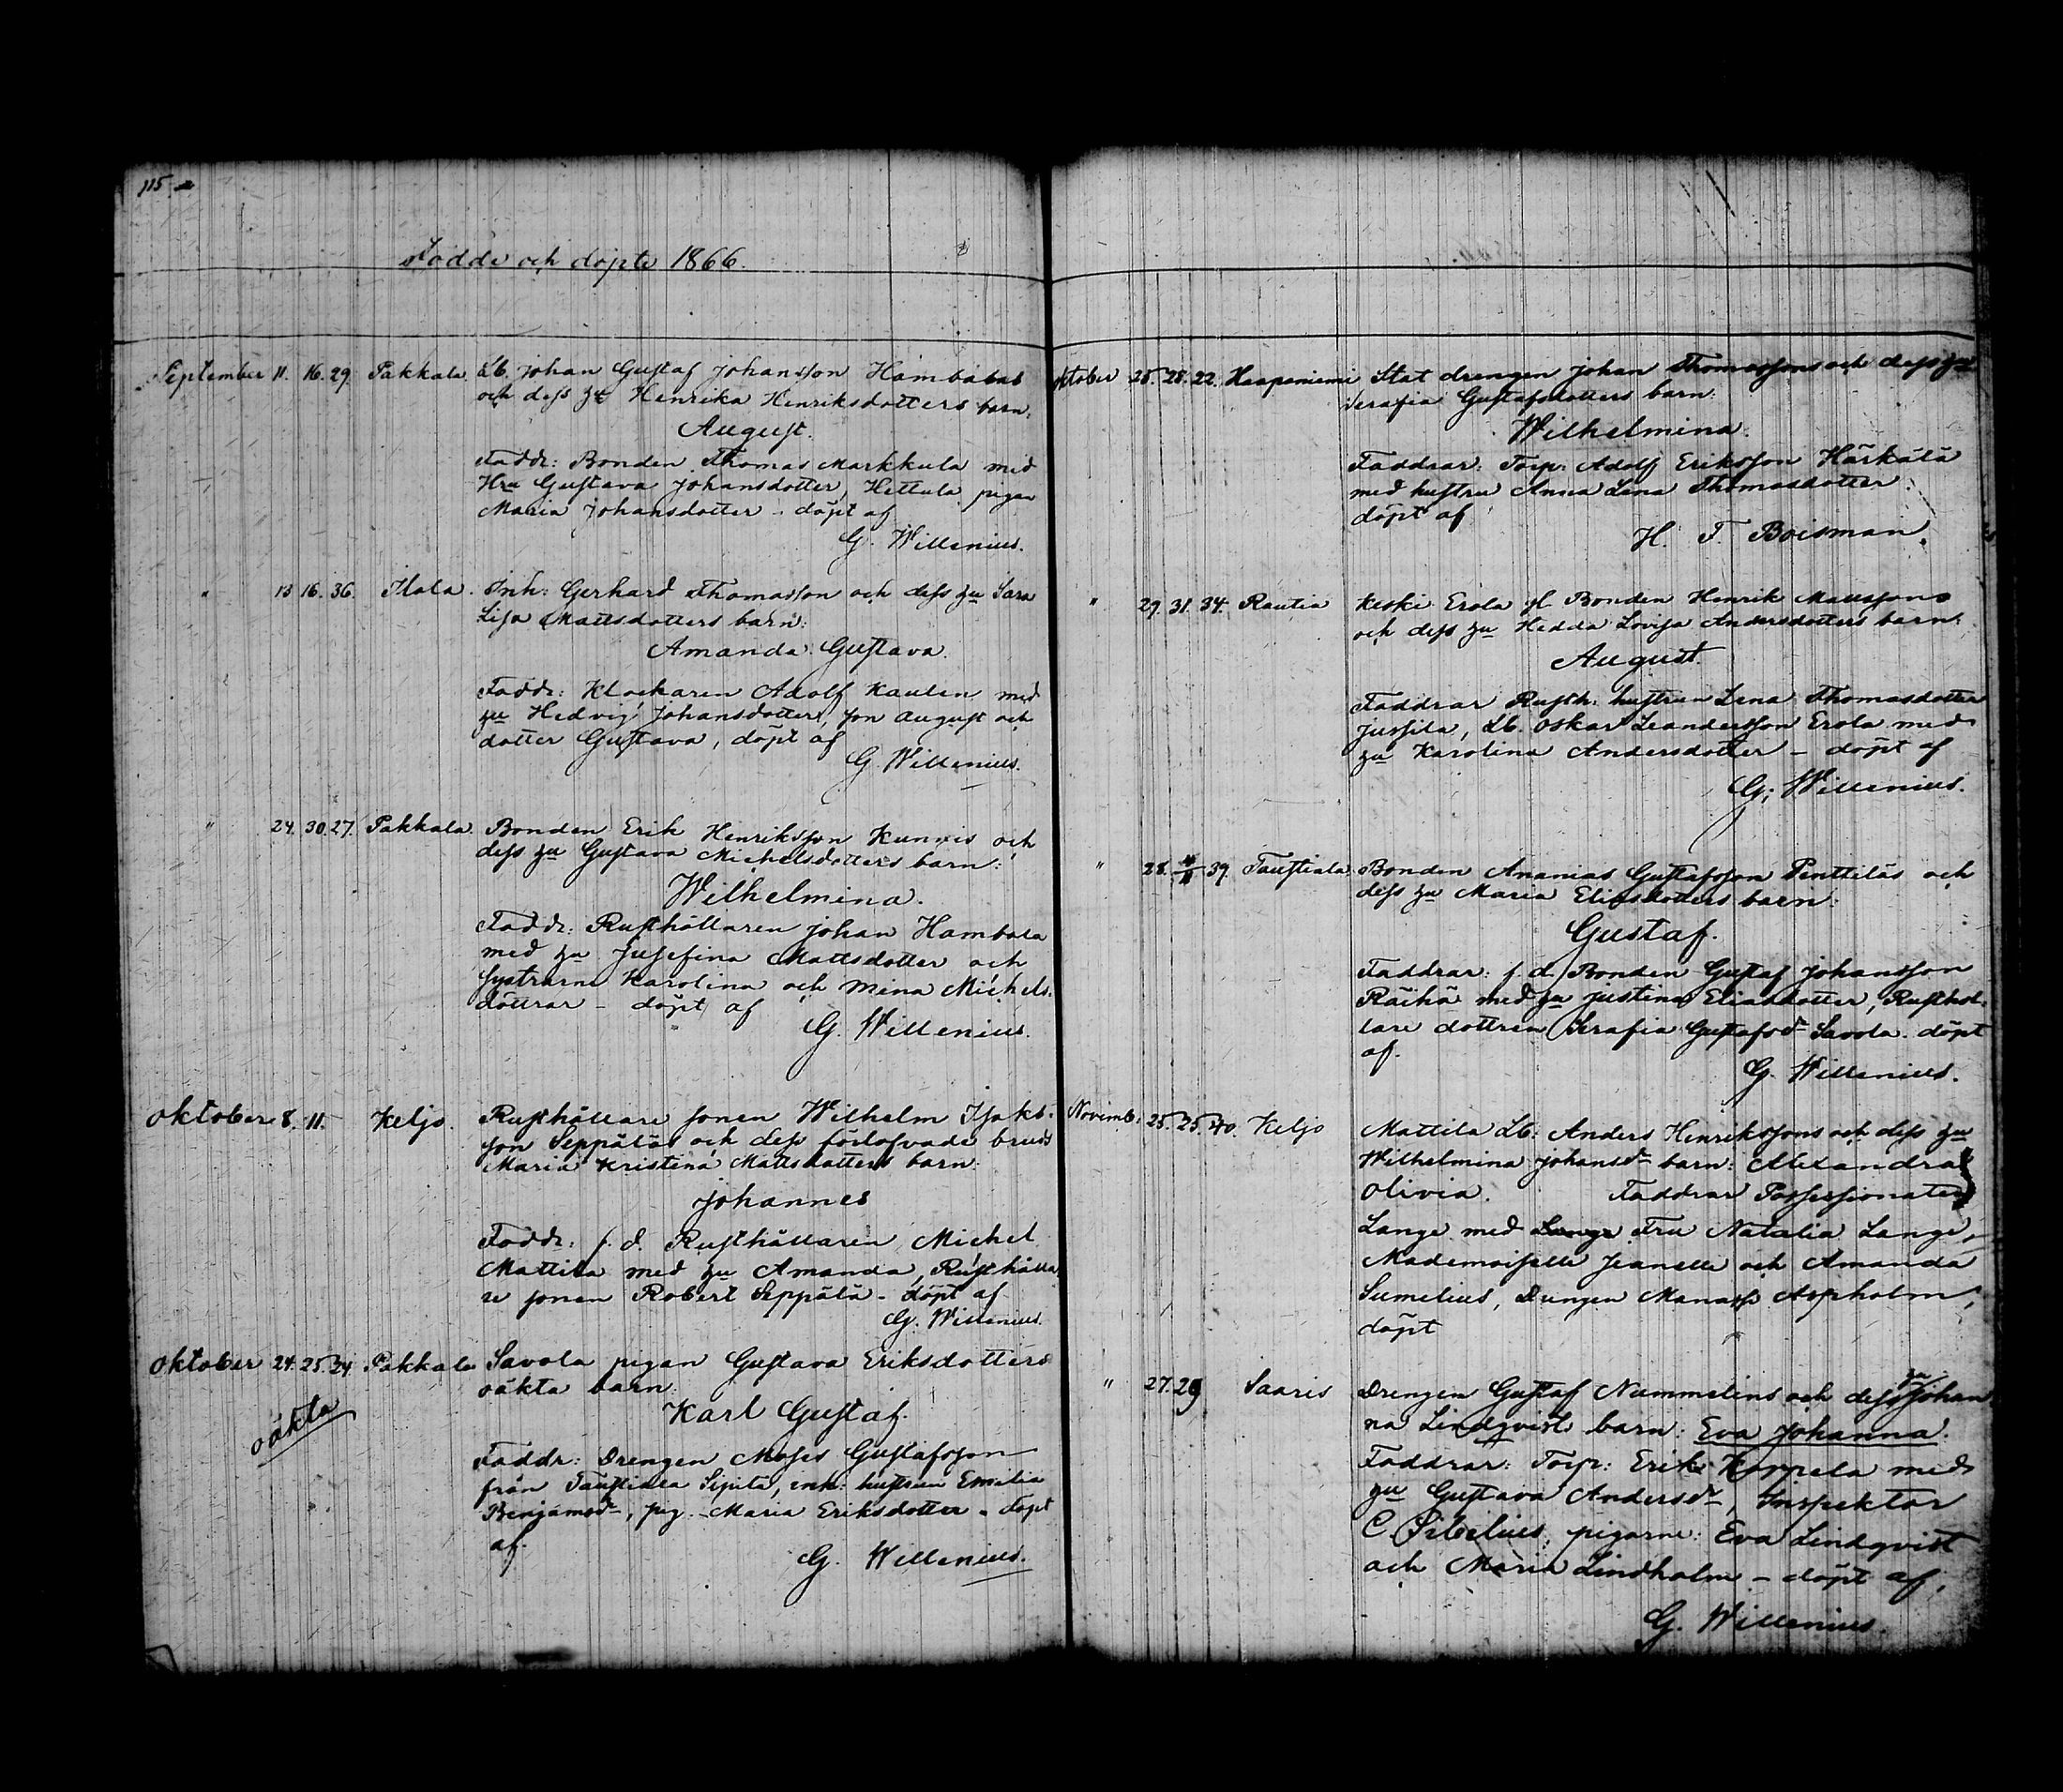 115
Födde och döpte 1866.
September 11. 16. 29. Pakkala. Lb. Johan Gustaf Johansson Hambabas
och dess hu Henrika Henriksdotters barn.
August.
Faddr: Bonden Thomas Markkula med
Hru Gustava Johansdotter, Hettula pigan
Maria Johansdotter – döpt af
G. Willenius.
" 13 16. 36. Itala. Inh: Gerhard Thomasson och dess hu Sara
Lisa Mattsdotters barn:
Amanda Gustava.
Faddr: Klockaren Adolf Kaulen med
hu Hedvig Johansdotter, son August och
dotter Gustava, döpt af
G. Willenius.
" 24. 30. 27. Pakkala. Bonden Erik Henriksson Kunnis och
dess hu Gustava Michelsdotters barn:
Wilhelmina.
Faddr: Rusthållaren Johan Hambala
med hu Jusefina Mattsdotter och
systrarne Karolina och Mina Michels-
döttrar – döpt af
G. Willenius.
Oktober 8. 11. Keljo. Rusthållare sonen Wilhelm Isaks-
son Seppäläs och dess förlofvade bruds
Maria Kristina Mattsdotters barn:
Johannes
Faddr: f. d. Rusthållaren Michel
Mattila med hu Amanda, Rusthålla
re sonen Robert Seppälä – döpt af
G. Willenius.
Oktober 24. 25. 34. Pakkala Savola pigan Gustava Eriksdotters
oäkta barn:
oäkta
Karl Gustaf.
Faddr: Drengen Moses Gustafsson
från Taustiala Sipilä, inh: hustrun Emilia
Benjamsdr, pig. Maria Eriksdotter – döpt
af.
G. Willenius.
Oktober 25. 28. 22. Haapaniemi Stat drengen Johan Thomassons och dess hu
Serafia Gustafsdotters barn:
Wilhelmina.
Faddrar: Torp: Adolf Eriksson Härkälä
med hustru Anna Lena Thomasdotter.
döpt af
H. F. Boisman.
" 29. 31. 34. Rautia Keski Erola gl. Bonden Henrik Mattssons
och dess hu Hedda Lovisa Andersdotters barn:
August.
Faddrar Rusth: hustrun Lena Thomasdotter
Jussila, Lb. Oskar Leandersson Erola med
hu Karolina Andersdotter – döpt af
G. Willenius.
" 28. 4/11 39. Taustiala Bonden Ananias Gustafsson Penttiläs och
dess hu Maria Eliasdotters barn:
Gustaf.
Faddrar: f. d. Bonden Gustaf Johansson
Räihä med hu Justina Eliasdotter, Rusthål-
lare dottren Serafia Gustafsdr Savola. döpt
af.
G. Willenius.
Novemb: 25. 25. 40. Keljo Mattila Lb: Anders Henrikssons och dess hu
Wilhelmina Johansdr barn: Alexandra
Olivia. Faddrar Possessionaten
Lange med Lange Fru Natalia Lange,
Mademoiselle Jeanette och Amanda
Sumelius, Drengen Manasse Aspholm,
döpt
" 27. 29 Saaris Drengen Gustaf Nummelins och dess hu Johan
na Lindqvists barn: Eva Johanna.
Faddrar: Torp: Erik Korpela med
hu Gustava Andersdr, Inspektor
C. Sibelius, pigorne: Eva Lindqvist
och Maria Lindholm – döpt af.
G. Willenius.